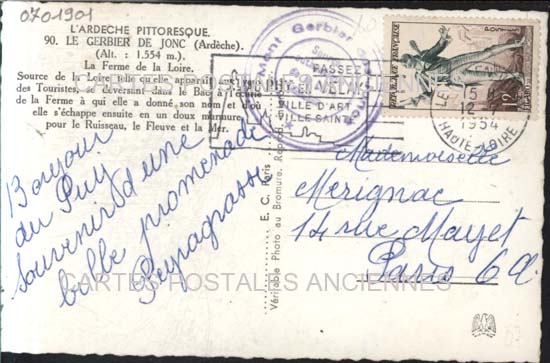 0701901
L'ARDECHE PITTORESQUE.
90. LE GERBIER DE JONC (Ardèche).
(Alt. : 1.554 m.)
La Ferme de la Loire.
Source de la Loire telle qu'elle apparaît aux yeux
des Touristes, se déversant dans le Bac à l'entrée
de la Ferme à qui elle a donné son nom et d'où
elle s'échappe ensuite en un doux murmure
pour le Ruisseau, le Fleuve et la Mer.
Bonjour
du Puy
Souvenir d'une
belle promenade
E. C. Paris
Véritable Photo au Bromure.
Mont Gerbier de Jonc
PASSEZ
LE PUY-EN-VELAY
VILLE D'ART
VILLE SAINTE
15
12
1954
HAUTE-LOIRE
POSTES
12F
Mademoiselle
Mérignac
14 rue Mayet
Paris 6e
CARTES POSTALES ANCIENNES